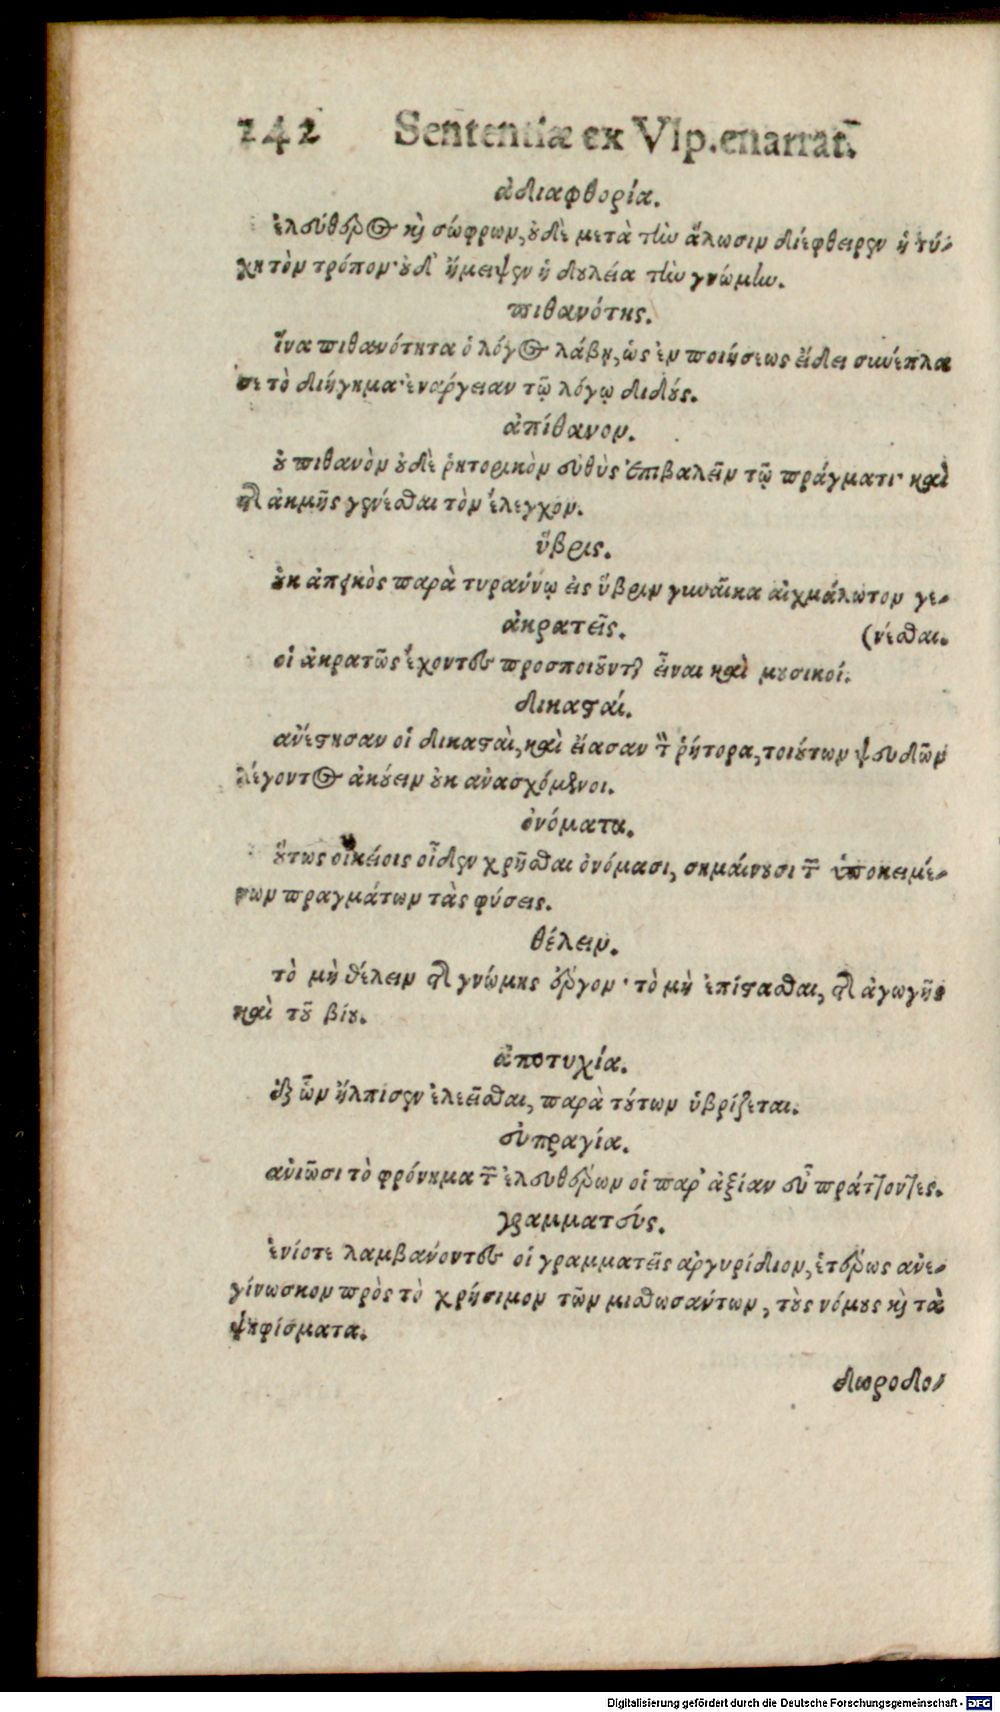 242 Sententiæ ex Vlp.enarrat̃.
ἀδιαφθορία.
ἐλεύθερος καὶ σώφρων, οὐδὲ μετὰ τὴν ἅλωσιν διέφθειρεν ἡ τύ-
χη τὸν τρόπον· οὐδ' ἤμειψεν ἡ δουλεία τὴν γνώμην.
πιθανότης.
ἵνα πιθανότητα ὁ λόγος λάβῃ, ὡς ἐν ποιήσεως εἴδει συνέπλα
σε τὸ διήγημα· ἐνάργειαν τῷ λόγῳ διδούς.
ἀπίθανον.
οὐ πιθανὸν οὐδὲ ῥητορικὸν εὐθὺς ἐπιβαλεῖν τῷ πράγματι· καὶ
ἐξ ἀκμῆς γενέσθαι τὸν ἔλεγχον.
ὕβρις.
οὐκ ἀπεικὸς παρὰ τυράννῳ εἰς ὕβριν γυναῖκα αἰχμάλωτον γε-
ἀκρατεῖς. (νέσθαι.
οἱ ἀκρατῶς ἔχοντες προσποιοῦνται εἶναι καὶ μουσικοί.
δικασταί.
ἀνέστησαν οἱ δικασταὶ, καὶ εἴασαν τὸν ῥήτορα, τοιούτων ψευδῶν
λέγοντος ἀκούειν οὐκ ἀνασχόμενοι.
ὀνόματα.
οὕτως οἰκείοις οἶδεν χρῆσθαι ὀνόμασι, σημαίνουσι τῶν ὑποκειμέ-
νων πραγμάτων τὰς φύσεις.
θέλειν.
τὸ μὴ θέλειν ἐξ γνώμης ἔργον· τὸ μὴ ἐπίστασθαι, ἐξ ἀγωγῆς
καὶ τοῦ βίου.
ἀποτυχία.
ἐξ ὧν ἤλπισεν ἐλεεῖσθαι, παρὰ τούτων ὑβρίζεται.
εὐπραγία.
ἀνιῶσι τὸ φρόνημα τῶν ἐλευθέρων οἱ παρ' ἀξίαν εὖ πράττοντες.
γραμματεύς.
ἐνίοτε λαμβάνοντες οἱ γραμματεῖς ἀργυρίδιον, ἑτέρως ἀνε-
γίνωσκον πρὸς τὸ χρήσιμον τῶν μισθωσάντων, τοὺς νόμους καὶ τὰ
ψηφίσματα.
δωροδο-
Digitalisierung gefördert durch die Deutsche Forschungsgemeinschaft - DFG